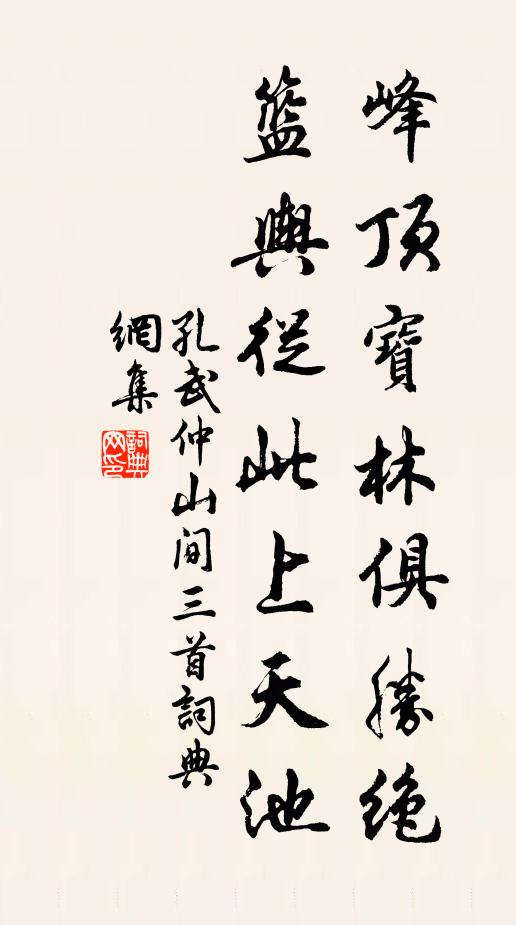 峰頂寶林俱勝絕
籃輿從此上天池
孔武仲山間三首詞典
網集
詞典网印